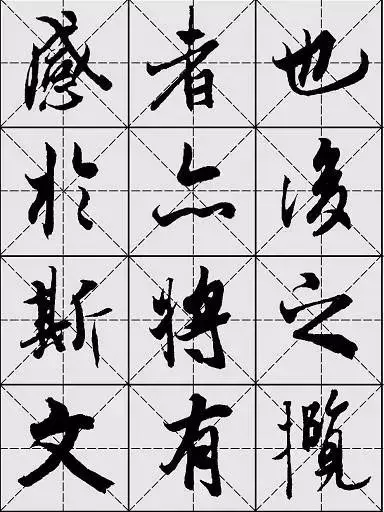 也後之攬
者亦將有
感於斯文